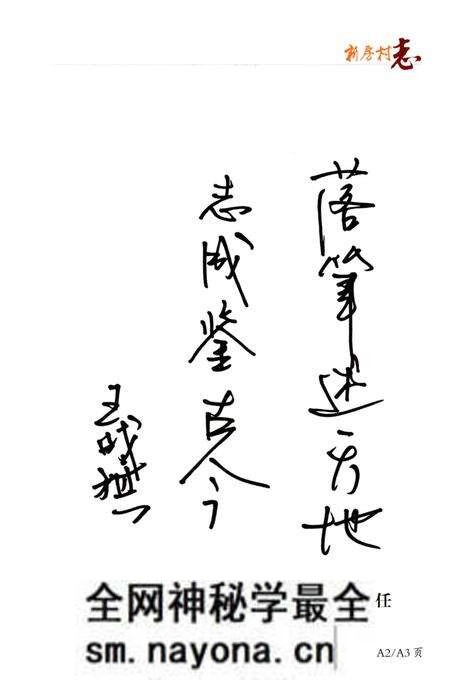 新房村志
落筆述方地
志成鉴古今
王
任
全网神秘学最全
sm.nayona.cn
A2/A3页